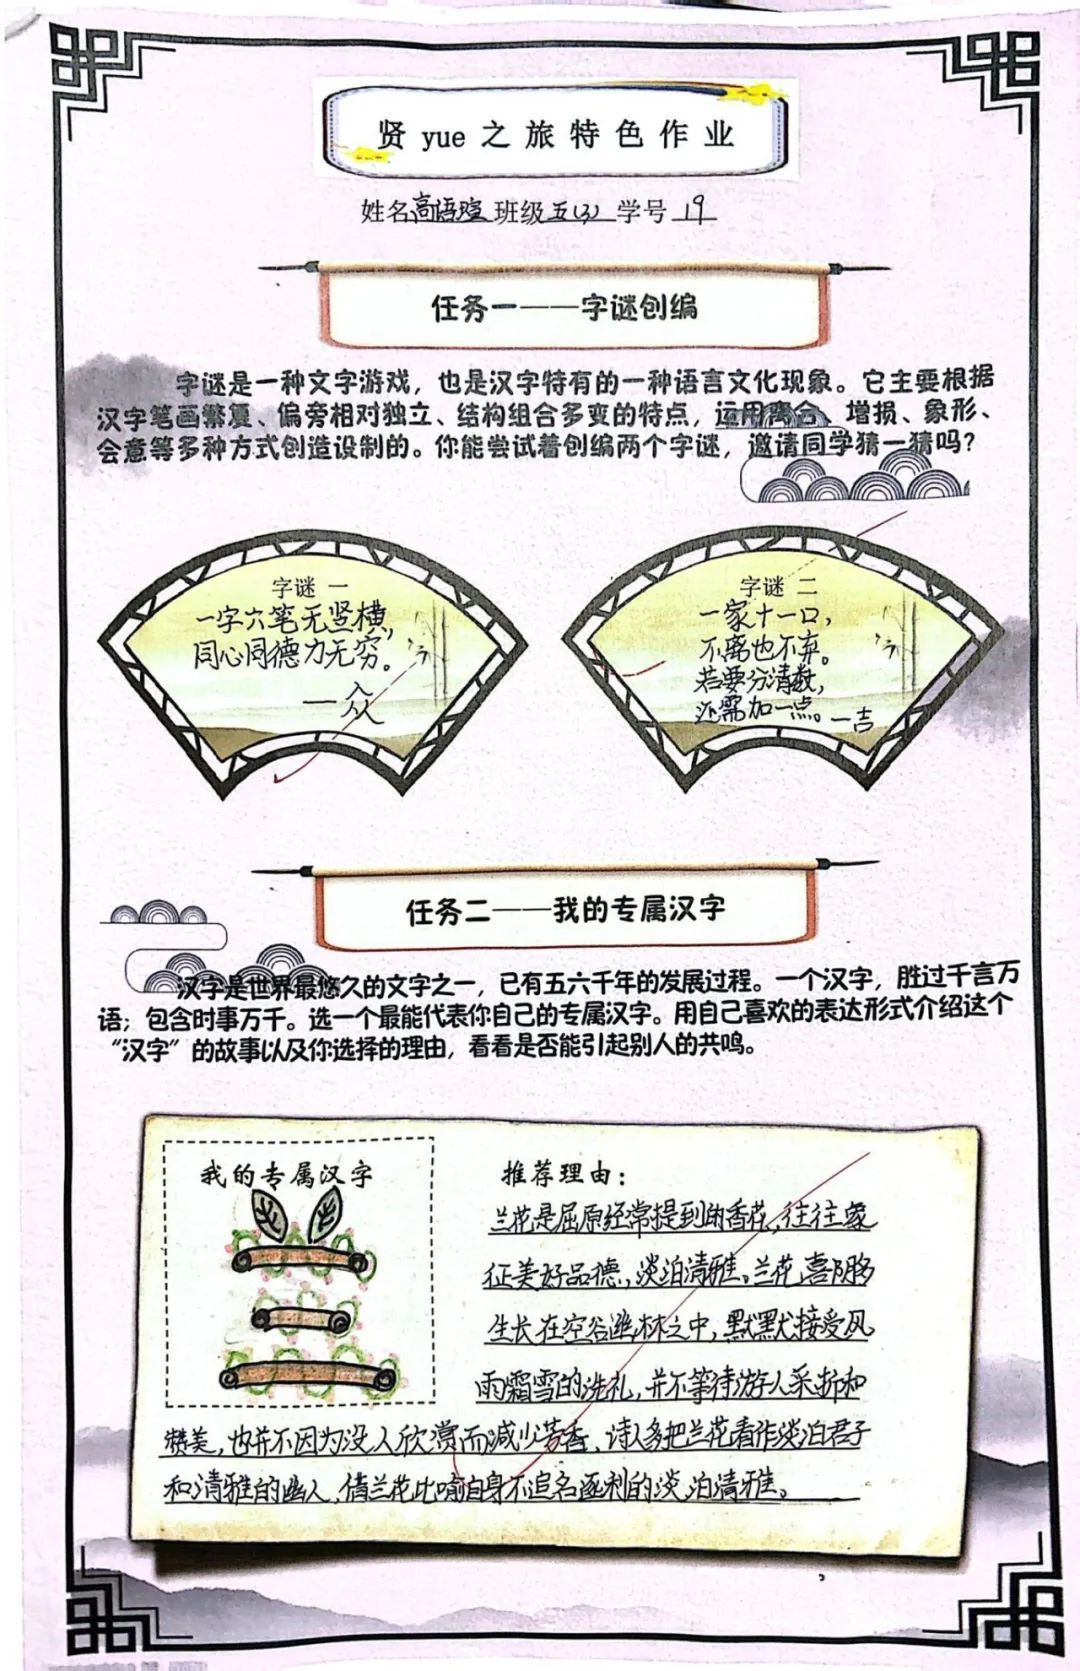 贤 yue 之旅特色作业
姓名高语瑄 班级五(3) 学号 19
任务一——字谜创编
字谜是一种文字游戏，也是汉字特有的一种语言文化现象。它主要根据
汉字笔画繁复、偏旁相对独立、结构组合多变的特点，运用离合、增损、象形、
会意等多种方式创造设制的。你能尝试着创编两个字谜，邀请同学猜一猜吗？
字谜 一
一字六笔无竖横，
同心同德力无穷。
—众
字谜 二
一家十一口，
不离也不弃。
若要分清数，
还需加一点。—吉
任务二——我的专属汉字
汉字是世界最悠久的文字之一，已有五六千年的发展过程。一个汉字，胜过千言万
语；包含时事万千。选一个最能代表你自己的专属汉字。用自己喜欢的表达形式介绍这个
“汉字”的故事以及你选择的理由，看看是否能引起别人的共鸣。
我的专属汉字
兰
推荐理由：
兰花是屈原经常提到的香花，往往象
征美好品德，淡泊清雅。兰花喜阴多
生长在空谷幽林之中，默默接受风
雨霜雪的洗礼，并不等待游人采折和
赞美，也并不因为没人欣赏而减少芳香，诗人多把兰花看作淡泊君子
和清雅的幽人，借兰花比喻自身不追名逐利的淡泊清雅。